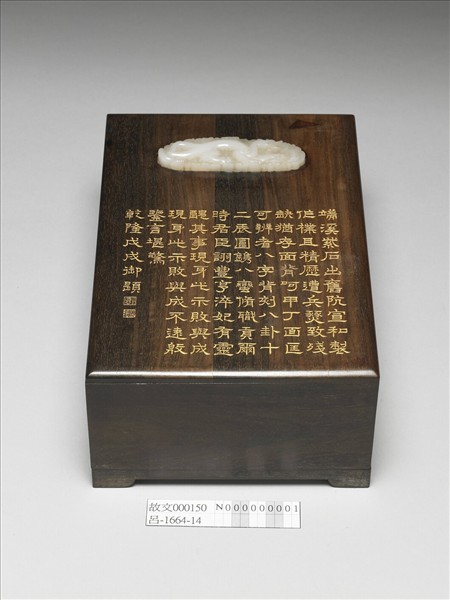 端溪紫石出舊阬宣和製
作樸且精歷遭兵燹致殘
缺猶存面背阿甲丁面匡
可辨者八字背刻八卦十
二辰圖鐫八蠻脩職貢爾
時君臣詡豐亨淬妃有靈
醜其事現身此示敗與成
現身此示敗與成不遠殷
鑒言堪驚
乾隆戊戌御題
故文000150 N000000001
呂-1664-14